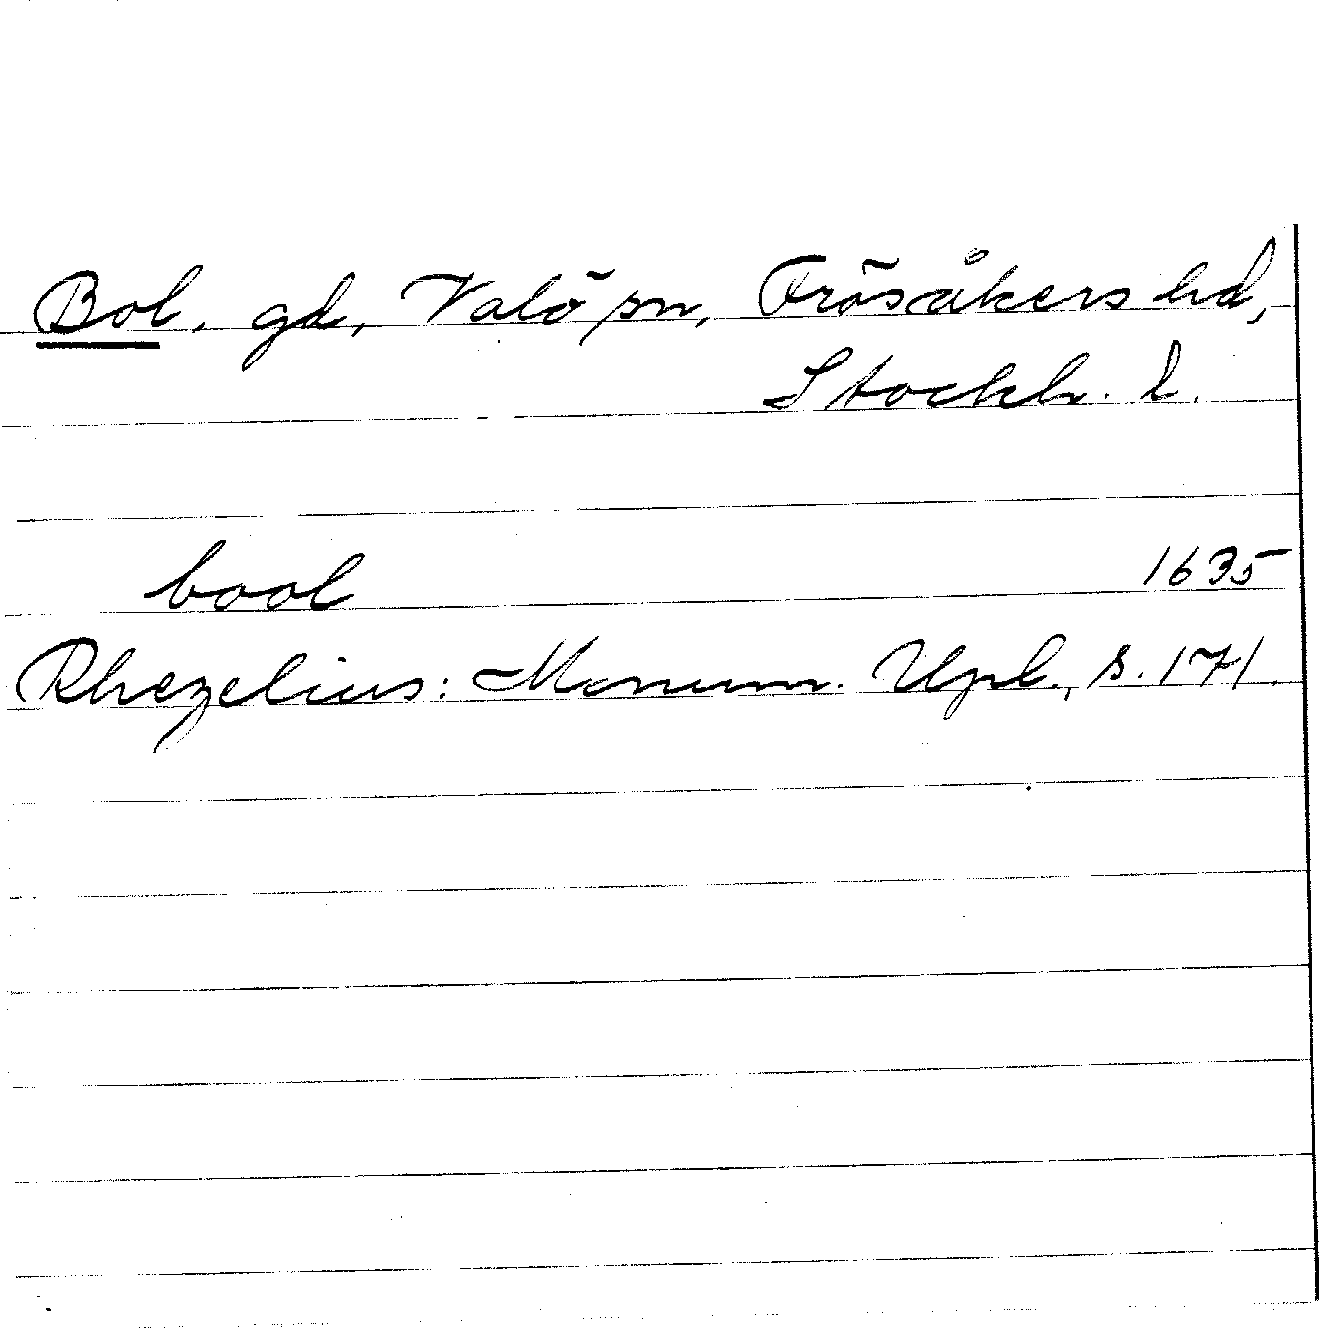 Bol, gd, Valö sn, Frösåkers hd,
Stockh. l.
bool 1635
Rhezelius: Monum. Upl., s. 171.